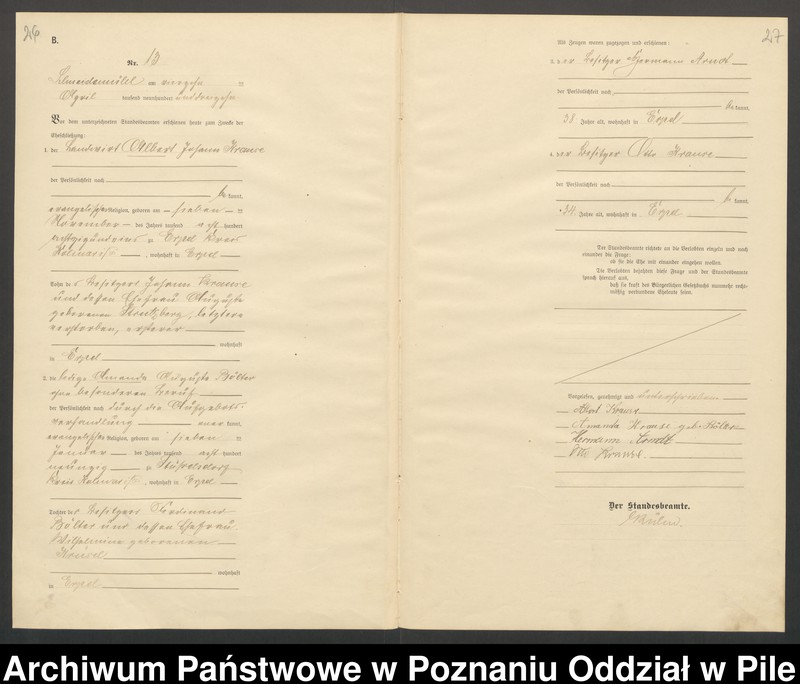 26
B.
Nr. 13
Schneidemühl am vierzehn ten
April tausend neunhundert
Vor dem unterzeichneten Standesbeamten erschienen heute zum Zwecke der
Eheschließung:
1. der Landwirt Albert Johann Krause
der Persönlichkeit nach
be kannt,
evangelischer Religion, geboren am sieben ten
November des Jahres tausend acht hundert
zu Erpel Kreis
Kolmar i/P , wohnhaft in Erpel
Sohn des Besitzers Johann Krause
und dessen Ehefrau Auguste
geborenen Kreutzberg, letztere
verstorben, ersterer
wohnhaft
in Erpel
2. die ledige Amanda Auguste Bölter
ohne besonderen Beruf
der Persönlichkeit nach durch die Aufgebots-
verhandlung aner kannt,
evangelischer Religion, geboren am sieben ten
Januar des Jahres tausend acht hundert
neunzig zu
Kreis Kolmar i/P , wohnhaft in Erpel
Tochter des Besitzers Ferdinand
Bölter und dessen Ehefrau
Wilhelmine geborenen
wohnhaft
in Erpel
27
Als Zeugen waren zugezogen und erschienen:
3. der Besitzer Hermann Arndt
der Persönlichkeit nach
be kannt,
38 Jahre alt, wohnhaft in Erpel
4. der Besitzer Otto Krause
der Persönlichkeit nach
be kannt,
34 Jahre alt, wohnhaft in Erpel
Der Standesbeamte richtete an die Verlobten einzeln und nach
einander die Frage:
ob sie die Ehe mit einander eingehen wollen.
Die Verlobten bejahten diese Frage und der Standesbeamte
sprach hierauf aus,
daß sie kraft des Bürgerlichen Gesetzbuchs nunmehr recht-
mäßig verbundene Eheleute seien.
Vorgelesen, genehmigt und unterschrieben
Albert Krause
Amanda Krause geb. Bölter
Hermann Arndt
Otto Krause
Der Standesbeamte.
Archiwum Państwowe w Poznaniu Oddział w Pile